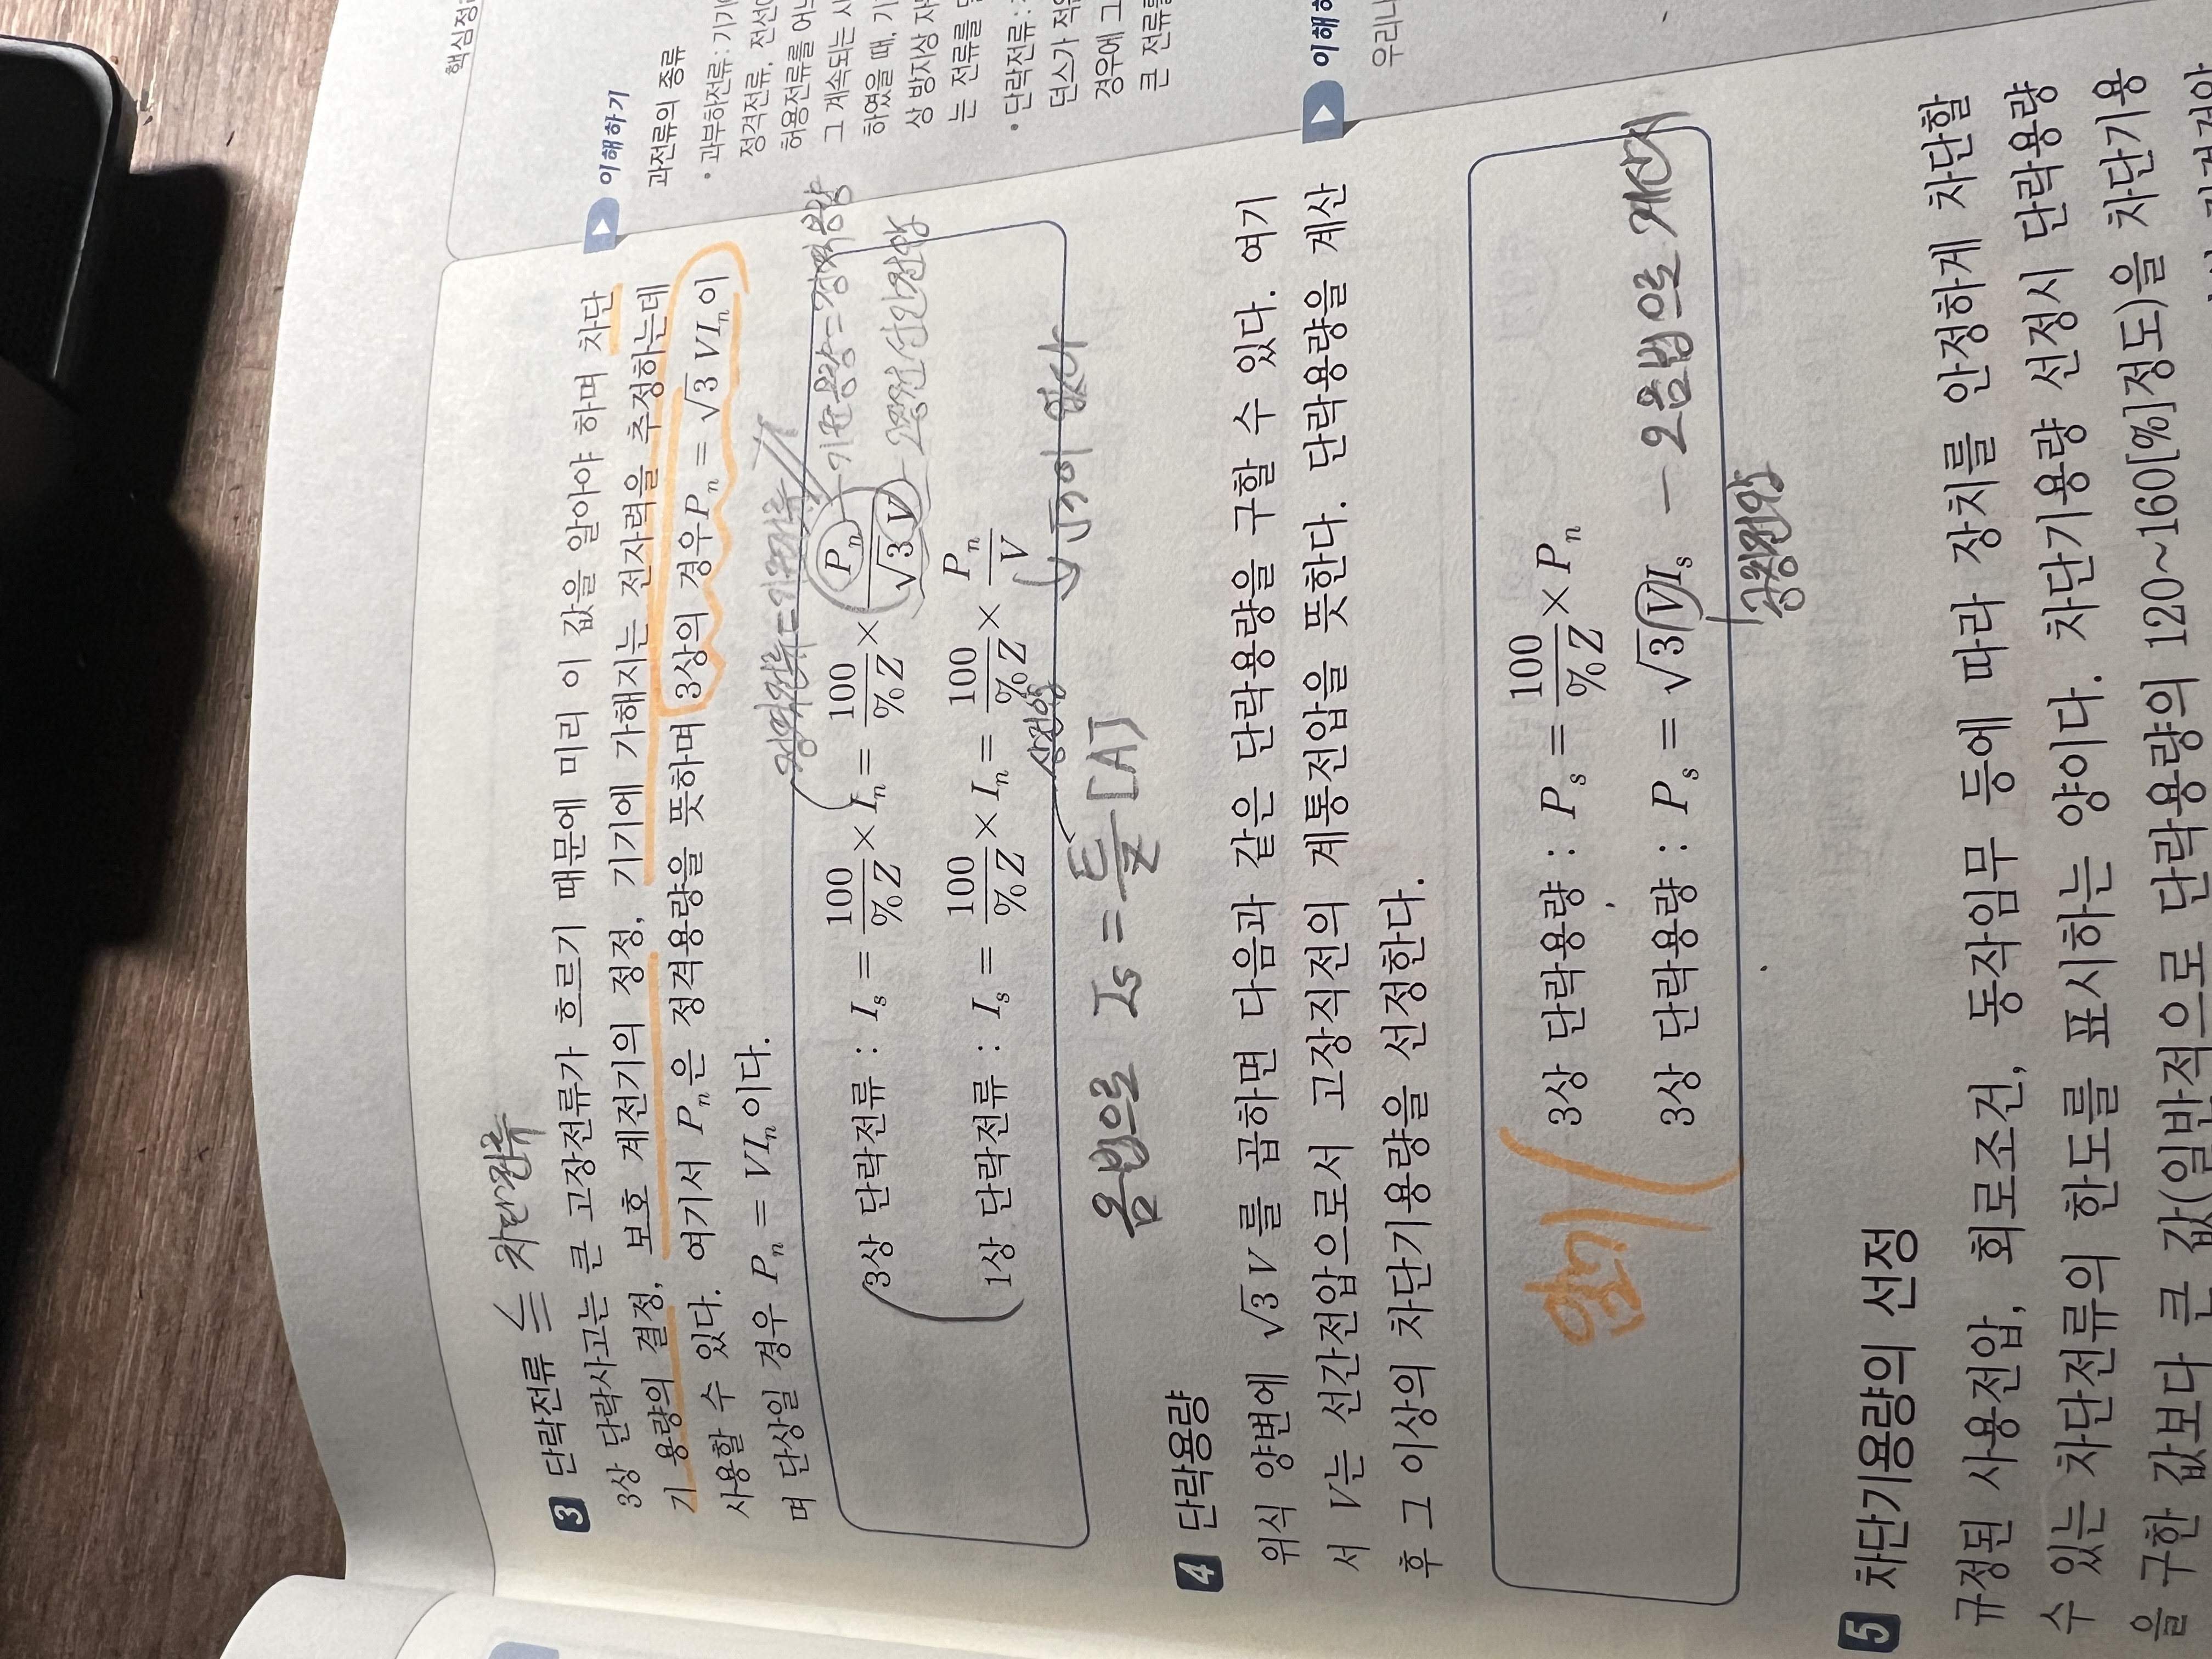 핵심정
3 단락전류 ≦ 차단전류
3상 단락사고는 큰 고장전류가 흐르기 때문에 미리 이 값을 알아야 하며 차단
기 용량의 결정, 보호 계전기의 정정, 기기에 가해지는 전자력을 추정하는데
사용할 수 있다. 여기서 Pₙ은 정격용량을 뜻하며 3상의 경우 Pₙ = √3 VIₙ이
며 단상일 경우 Pₙ = VIₙ이다.
정격전류=기준전류
3상 단락전류 : Iₛ = 100/%Z × Iₙ = 100/%Z × Pₙ/√3 V
기준용량=정격용량
1상 단락전류 : Iₛ = 100/%Z × Iₙ = 100/%Z × Pₙ/V
√3이 없다
옴법으로 Is = E/Z [A]
상전압
4 단락용량
위식 양변에 √3 V를 곱하면 다음과 같은 단락용량을 구할 수 있다. 여기
서 V는 선간전압으로서 고장직전의 계통전압을 뜻한다. 단락용량을 계산
후 그 이상의 차단기용량을 선정한다.
암기
3상 단락용량 : Pₛ = 100/%Z × Pₙ
3상 단락용량 : Pₛ = √3 VIₛ - 오옴법으로 계산
공칭전압
5 차단기용량의 선정
규정된 사용전압, 회로조건, 동작임무 등에 따라 장치를 안정하게 차단할
수 있는 차단전류의 한도를 표시하는 양이다. 차단기용량 선정시 단락용량
을 구한 값보다 큰 값(일반적으로 단락용량의 120~160[%]정도)을 차단기용
이해하기
과전류의 종류
• 과부하전류 : 기기
정격전류, 전선
허용전류를 어느
그 계속되는 시
하였을 때, 기
상 방지상 자
는 전류를 말
• 단락전류 :
던스가 적은
경우에 그
큰 전류를
이해하
우리나